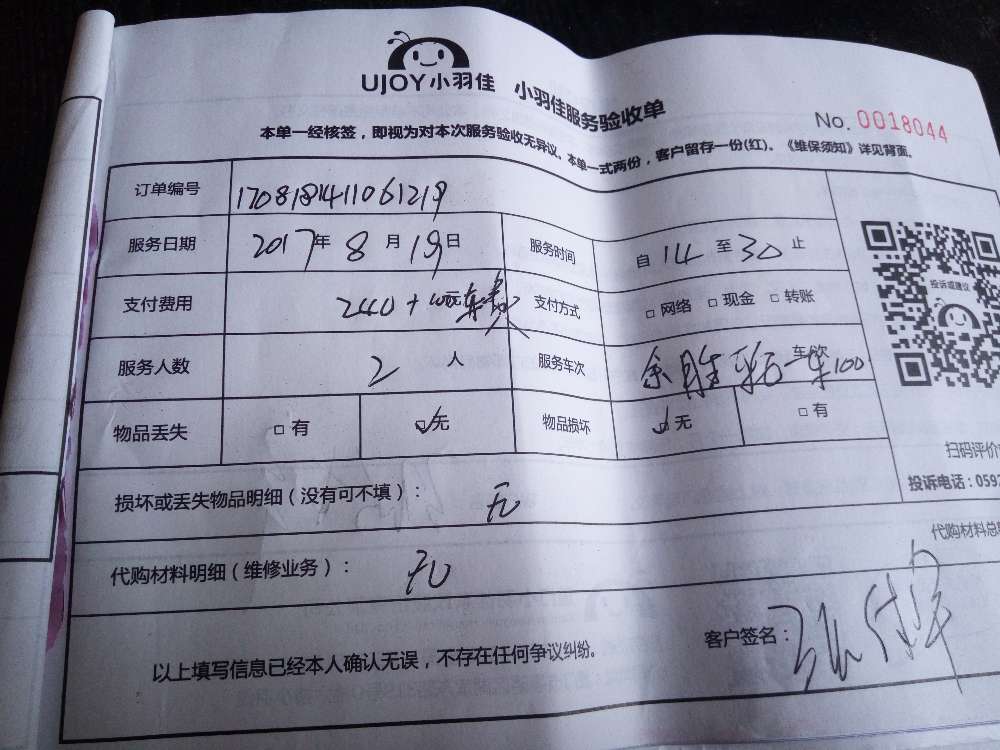 UJOY小羽佳 小羽佳服务验收单
No. 0018044
本单一经核签，即视为对本次服务验收无异议。本单一式两份，客户留存一份(红)。《维保须知》详见背面。
订单编号 1708181411061219
服务日期 2017年8月19日 服务时间 自14至30止
支付费用 2440+ 支付方式 □网络 □现金 □转账
服务人数 2人 服务车次 车次 一车100
物品丢失 □有 ☑无 物品损坏 ☑无 □有
投诉或建议
扫码评价
投诉电话：059
损坏或丢失物品明细（没有可不填）： 无
代购材料总
代购材料明细（维修业务）： 无
以上填写信息已经本人确认无误，不存在任何争议纠纷。 客户签名：